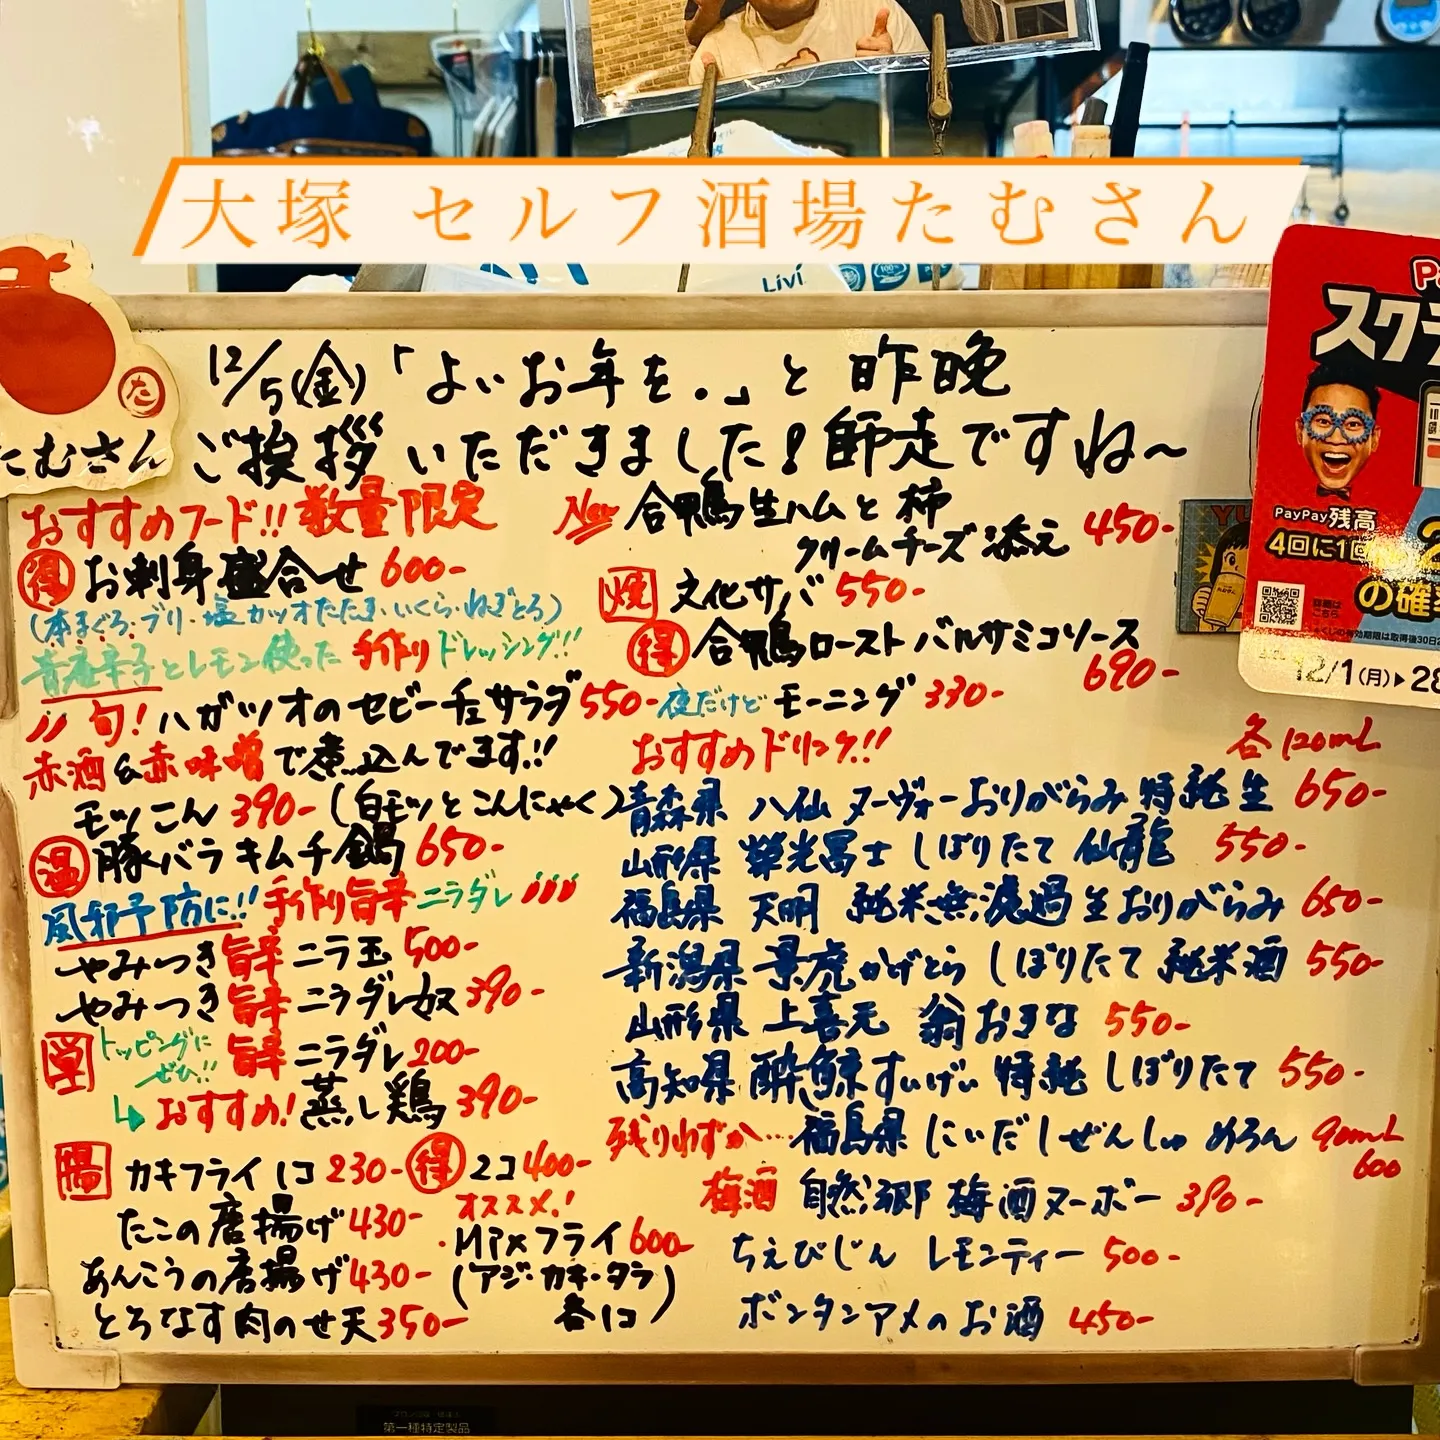 大塚 セルフ酒場たむさん
Livi
たむさん
12/5(金)「よいお年を。」と 昨晩
ご挨拶 いただきました!師走ですね~
おすすめフード!! 数量限定
得 お刺身盛合せ 600-
(本まぐろ・ブリ・塩カツオたたき・いくら・ねぎとろ)
青唐辛子とレモン使った 手作りドレッシング!!
〃 旬! ハガツオのセビーチェサラダ 550-
赤酒&赤味噌で煮込んでます!!
モツこん 390- (白モツとこんにゃく)
温 豚バラキムチ鍋 650-
風邪予防に!! 手作り旨辛ニラダレ
やみつき旨辛ニラ玉 500-
やみつき旨辛ニラダレ奴 390-
単 トッピングにぜひ!! 旨辛ニラダレ 200-
↳ おすすめ! 蒸し鶏 390-
揚 カキフライ 1コ 230- 得 2コ 400-
オススメ!
たこの唐揚げ 430-
・MIXフライ 600-
あんこうの唐揚げ 430-
(アジ・カキ・タラ
各1コ)
とろなす肉のせ天 350-
New 合鴨生ハムと柿
クリームチーズ添え 450-
焼 文化サバ 550-
得 合鴨ロースト バルサミコソース
690-
夜だけど モーニング 330-
おすすめドリンク!! 各120mL
青森県 八仙 ヌーヴォーおりがらみ 特純生 650-
山形県 榮光冨士 しぼりたて 仙龍 550-
福島県 天明 純米無濾過生おりがらみ 650-
新潟県 景虎かげとら しぼりたて 純米酒 550-
山形県 上喜元 翁おきな 550-
高知県 酔鯨すいげい 特純 しぼりたて 550-
残りわずか… 福島県 にいだしぜんしゅ めろん 90mL
600
梅酒 自然郷 梅酒ヌーボー 390-
ちえびじん レモンティー 500-
ボンタンアメのお酒 450-
PayPay残高
4回に1回
の確率
12/1(月)▶28
第一種特定製品